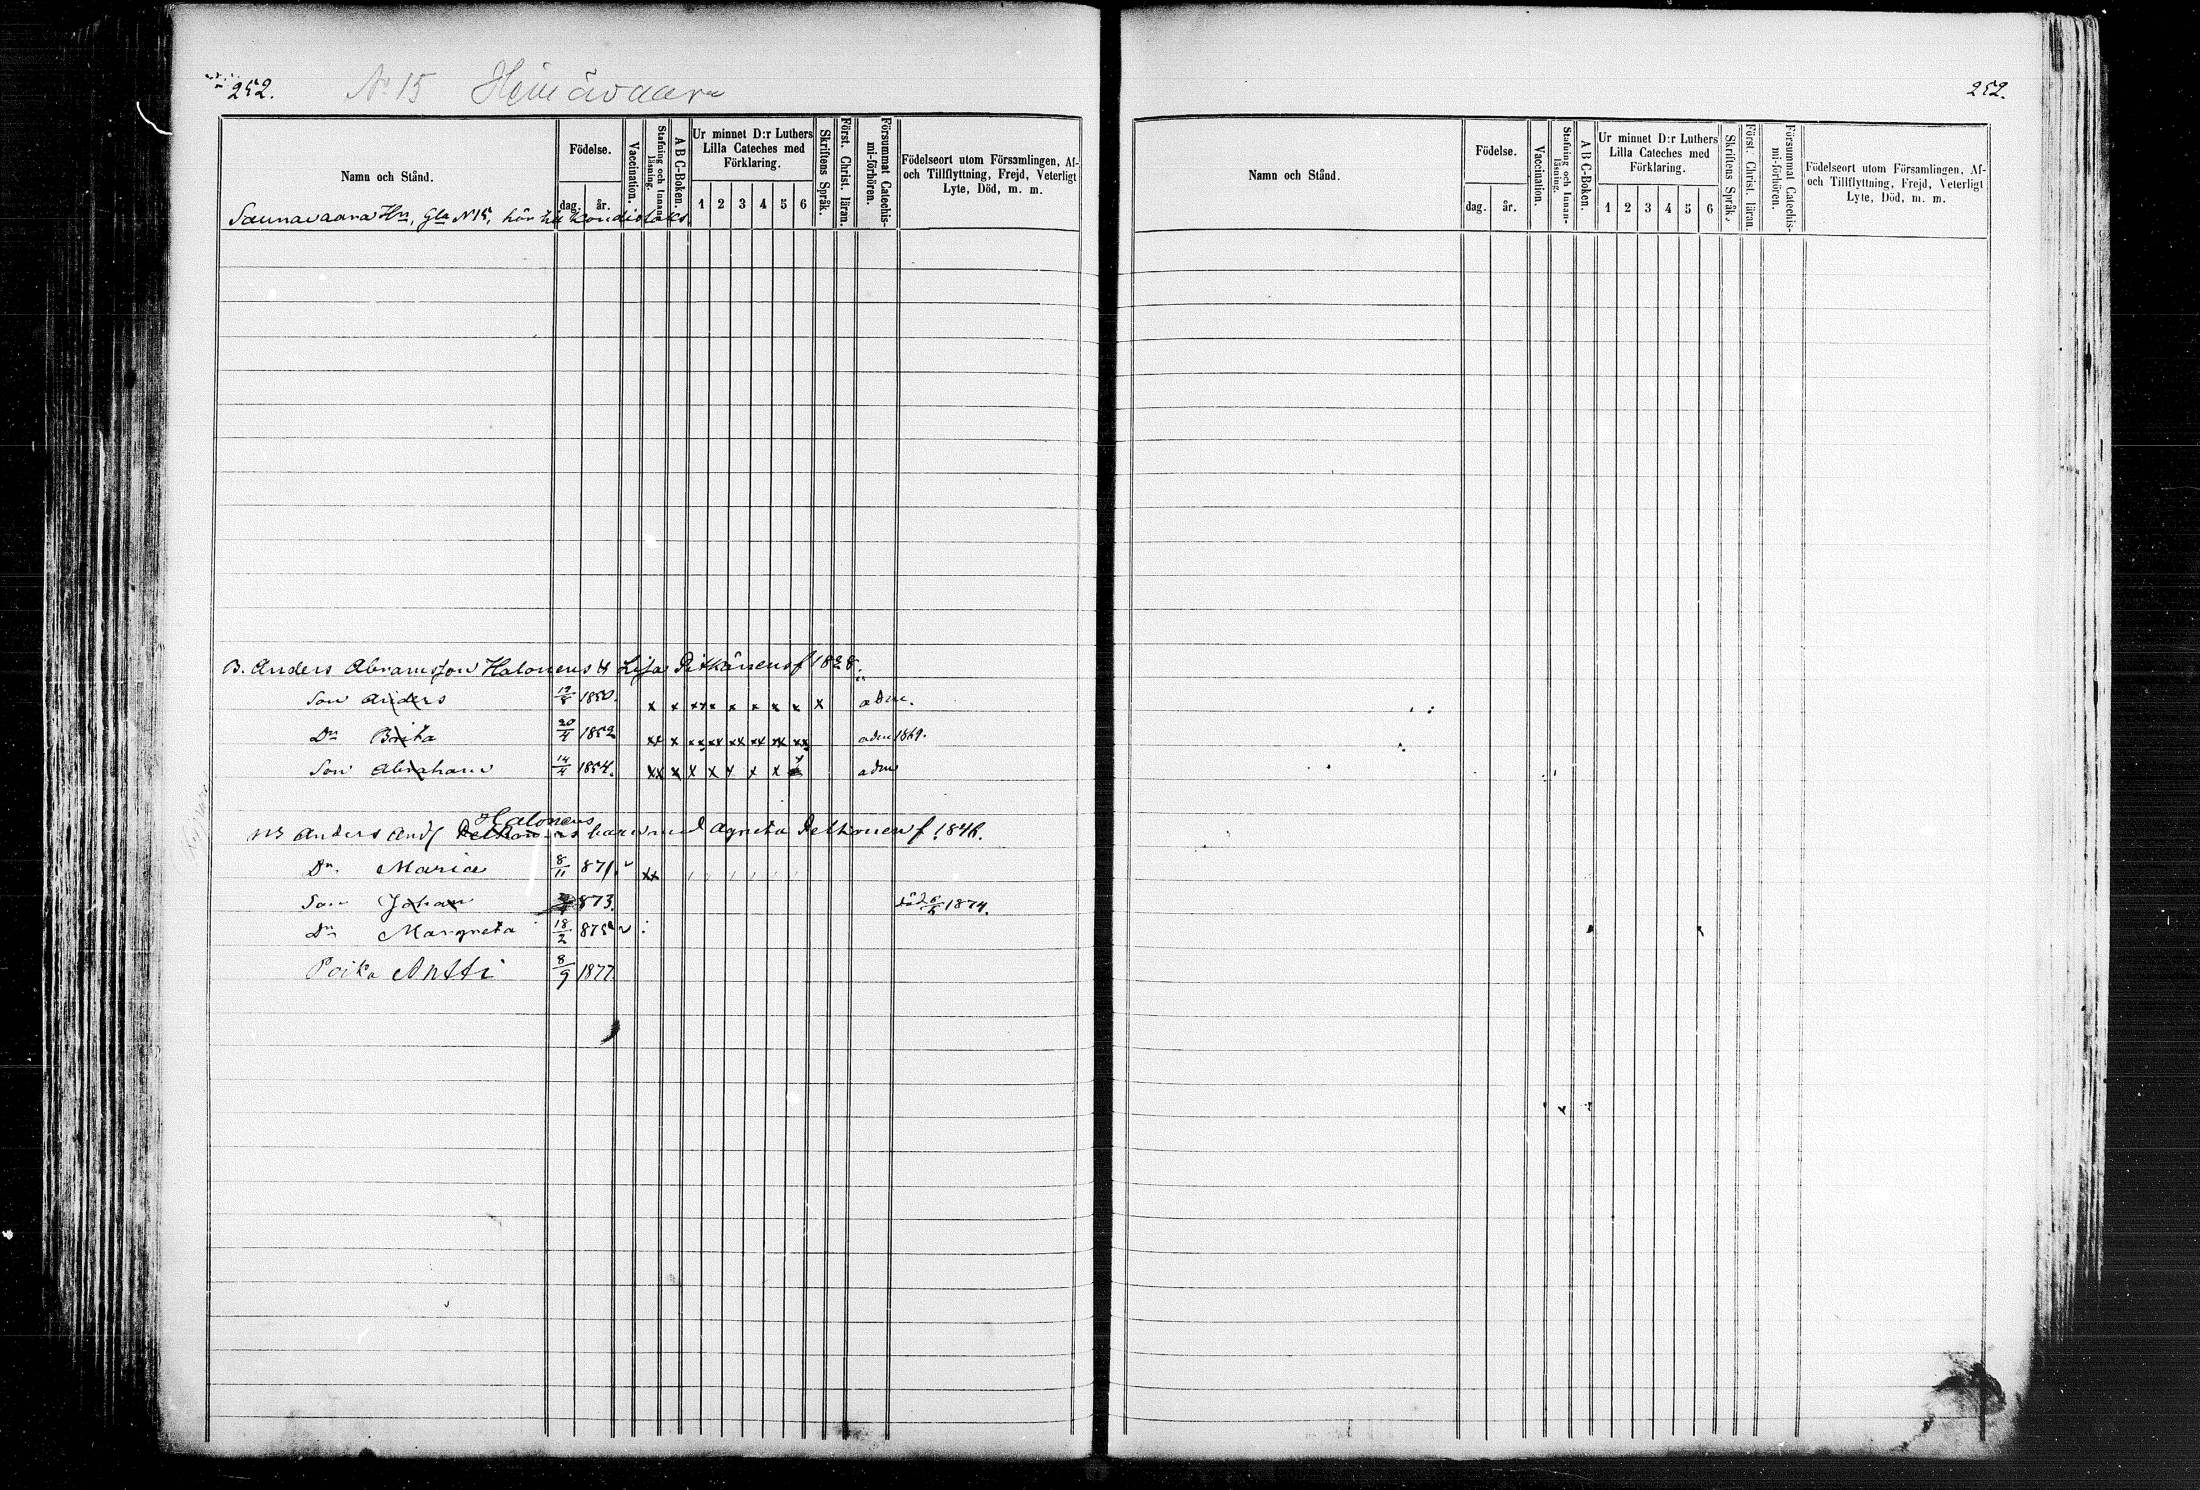 252. No 15 Heinävaara
Namn och Stånd.
Födelse.
dag. år.
Vaccination.
Stafning och Innan-läsning.
A B C-Boken.
Ur minnet D:r Luthers
Lilla Cateches med
Förklaring.
1 2 3 4 5 6
Skriftens Språk.
Först. Christ. läran.
Försummat Catechis-mi-förhören.
Födelseort utom Församlingen, Af-
och Tillflyttning, Frejd, Veterligt
Lyte, Död, m. m.
Saunavaara Hn, Gla N 15, hör till Kondiolaks
B. Anders Abramsson Halonens & Lisa Pitkänens f 1828.
Son Anders 1850. x x xx x x x x x x adm.
Dn Brita 20/4 1852 xx x xx xx xx xx xx xx adm 1869.
Son Abraham 14/4 1854. xx x x x x x x adm
Halonens
Anders And barn med Agneta Pelkonen f. 1848.
Dn. Maria 8/11 871. xx
Son Johan 873. död 1874.
Dn Margreta 18/2 875
Poika Antti 8/9 1877
252.
Namn och Stånd.
Födelse.
dag. år.
Vaccination.
Stafning och Innan-läsning.
A B C-Boken.
Ur minnet D:r Luthers
Lilla Cateches med
Förklaring.
1 2 3 4 5 6
Skriftens Språk.
Först. Christ. läran.
Försummat Catechis-mi-förhören.
Födelseort utom Församlingen, Af-
och Tillflyttning, Frejd, Veterligt
Lyte, Död, m. m.